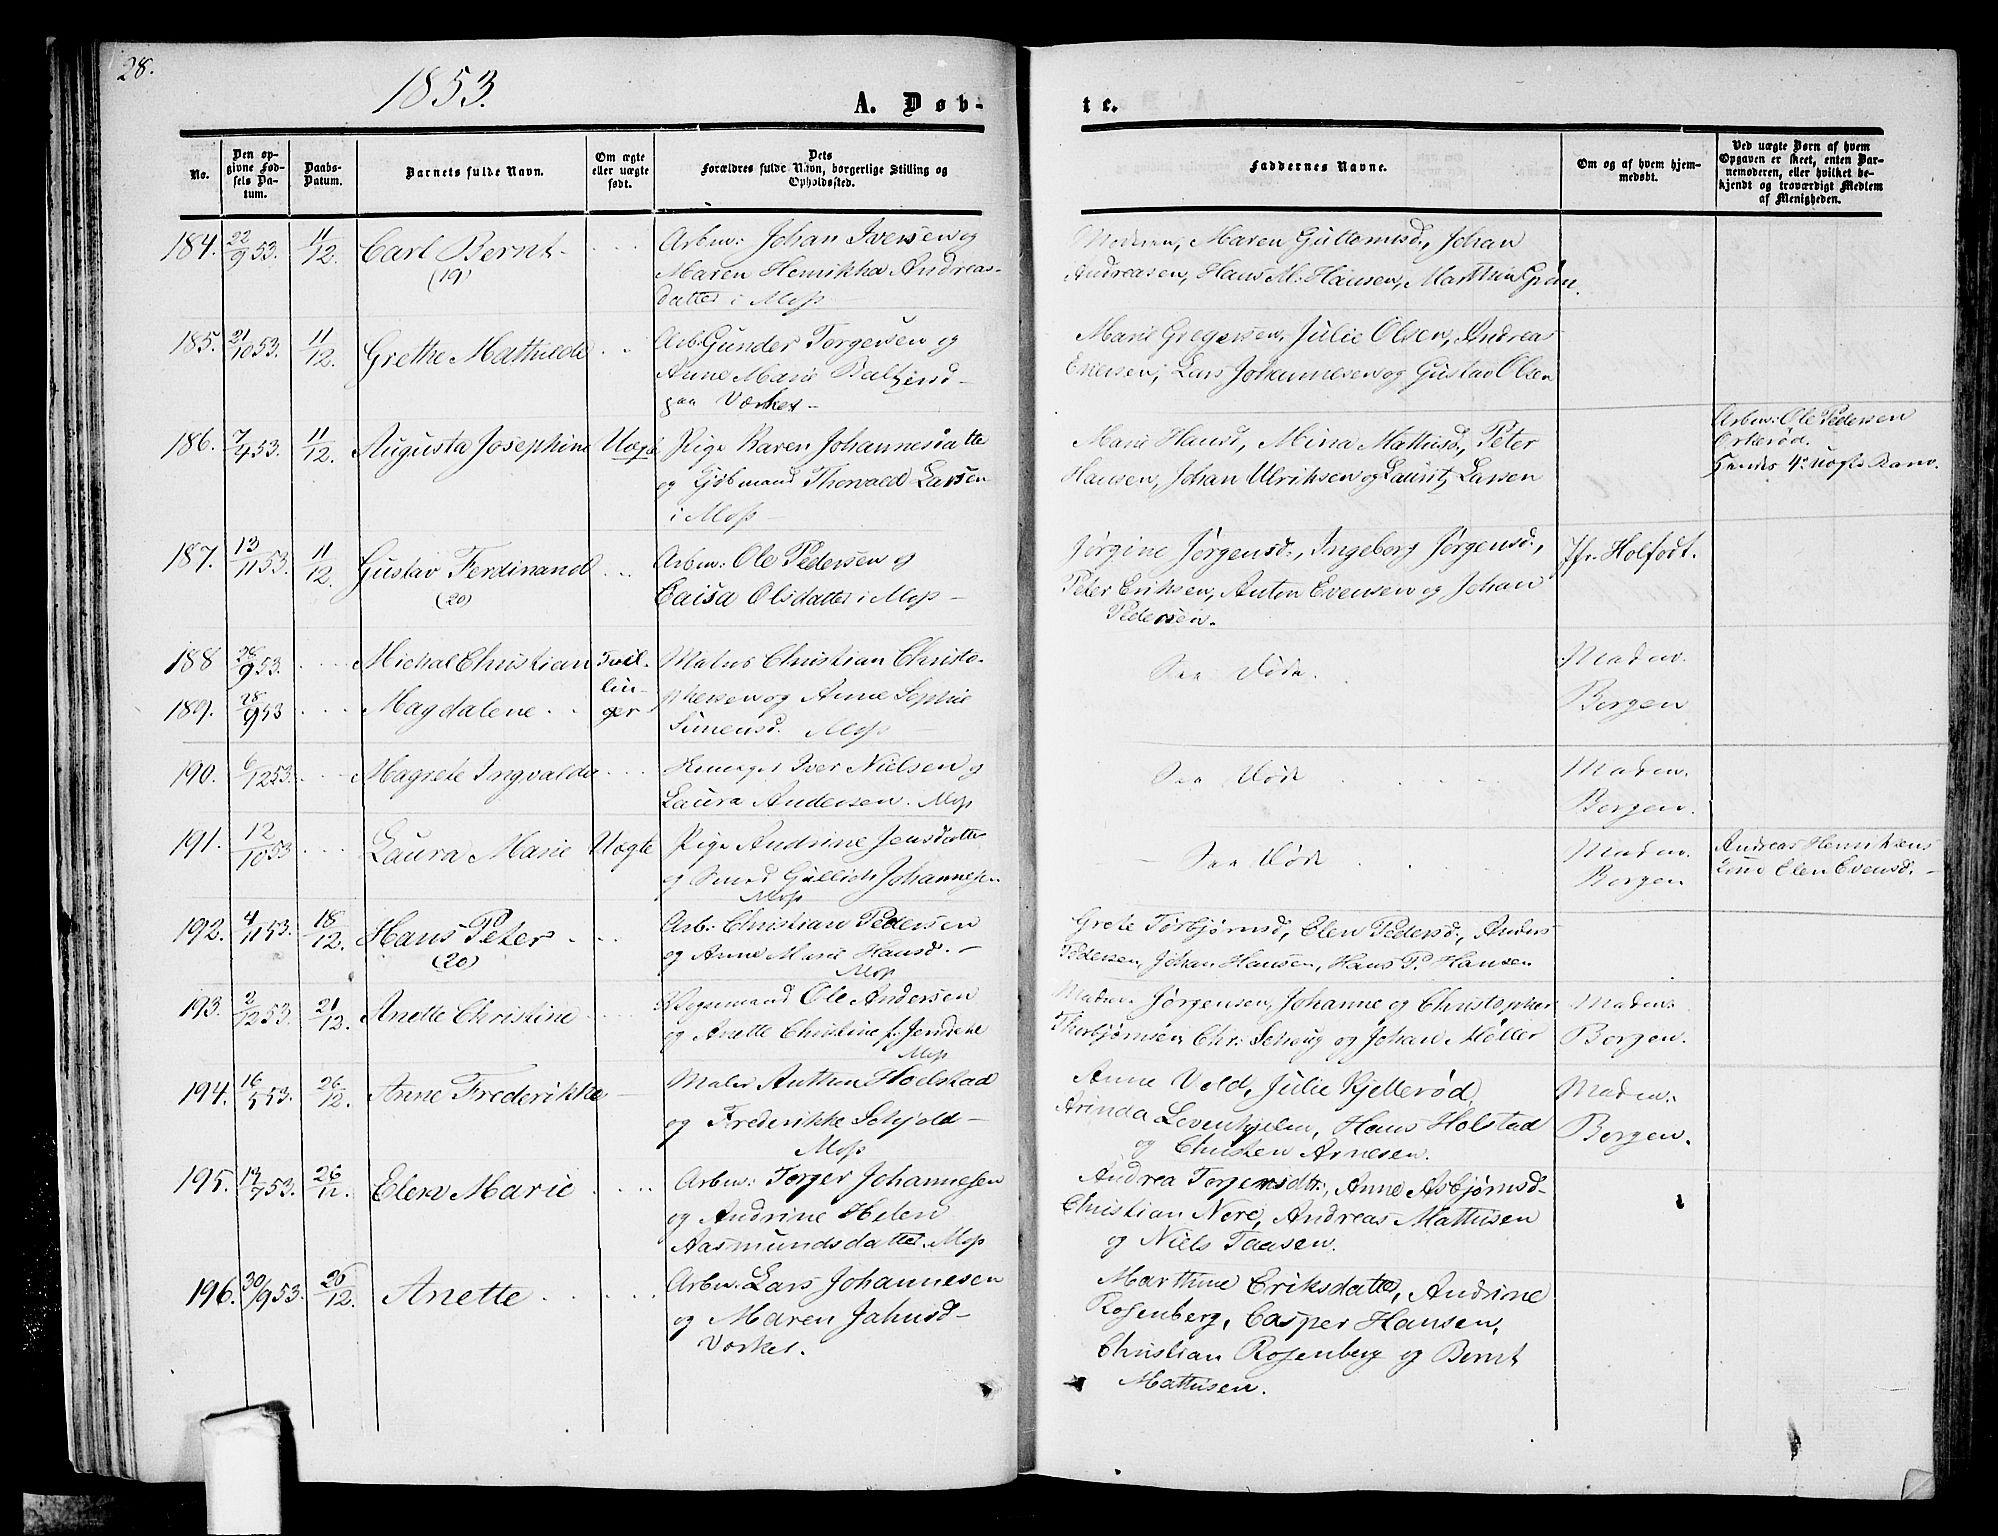 28.
1853.
A. Døb-
te.
No.
Den op-
givne Fød-
sels Da-
tum.
Daabs-
Datum.
Barnets fulde Navn.
Om ægte
eller uægte
født.
Dets
Forældres fulde Navn, borgerlige Stilling og
Opholdssted.
Faddernes Navne.
Om og af hvem hjem-
medøbt.
Ved uægte Børn af hvem
Opgaven er skeet, enten Bar-
nemoderen, eller hvilket be-
kjendt og troværdigt Medlem
af Menigheden.
184. 22/9 53. 11/12. Carl Bernt
(19)
Arbm: Johan Iversen og
Maren Henrikka Andreas-
datter i Moss
Moderen, Maren Guttormsd., Johan
Andreasen, Hans M. Hansen, Marthin Grøn.
185. 21/10 53. 11/12. Grethe Mathilde
Arb. Gunder Torgersen og
Anne Marie
paa Værket
Marie Gregersen, Julie Olsen, Andreas
Evensen, Lars Johannesen og Gustav Olsen
186. 7/4 53. 11/12. Augusta Josephine Uægte
Pige Karen Johannesdatte
og Thorvald Larsen
i Moss
Marie Hansd, Mina Mathisd., Peter
Hansen, Johan Ulriksen og Lauritz Larsen
Arbm: Ole Pedersen
Orkerød.
187. 13/11 53. 11/12. Gustav Ferdinand
(20)
Arbm: Ole Pedersen og
Caisa Olsdatter i Moss
Jørgine Jørgensd., Ingeborg Jørgensd.,
Peter Eriksen, Anton Evensen og Johan
Pedersen.
Jfr. Holfodt.
188 28/9 53. Michal Christian Tvil-
Maler Christian Christo-
189. 28/9 53 Magdalene lin-
ger
phersen og Anne Sophie
Simensd. Moss
Saa Døde.
Madm.
Borgen
190. 6/12 53. Magrete Ingvalda
Iver Nielsen og
Laura Andersen. Moss
Saa Døde
Madm.
Borgen.
191. 12/10 53 Laura Marie Uægte
Pige Andrine Jensdatte
og Smed Gullich Johannesen
Moss
Saa Døde
Madm.
Borgen
Andreas Henriksens
Elen Evensd.
192. 4/11 53. 18/12. Hans Peter
(20)
Arb: Christian Pedersen
og Anne Marie Hansd.
Moss
Grete Torbjørnsd, Elen Pedersd., Anders
Pedersen, Johan Hansen, Hans P. Hansen
193. 2/12 53. 21/12. Anette Christine
Ole Andersen
og Anette Christine f. Jensene
Moss
Madm. Jørgensen, Johanne og Christopher
Thorbjørnsen, Chr: Schoug og Johan Møller
Madm:
Borgen.
194. 16/5 53. 26/12. Anne Frederikke
Maler Anthon Hoelstad
og Frederikke Schjold
Moss
Anne Vold, Julie Kjellerød,
Arinda Levenhjelen, Hans Holstad
og Christen Arnesen.
Madm.
Borgen.
195. 13/7 53. 26/12. Elen Marie
Arbm: Torger Johannesen
og Andrine Helen
Aasmundsdatter. Moss
Andrea Torgersdttr., Anne Asbjørnsd
Christian Nore, Andreas Mathisen
og Niels Taasen.
196. 30/9 53. 26/12. Anette
Arbm. Lars Johannesen
og Maren Jahnsd
Værket.
Marthine Eriksdatter, Andrine
Rosenberg, Casper Hansen,
Christian Rosenberg og Bernt
Mathisen.